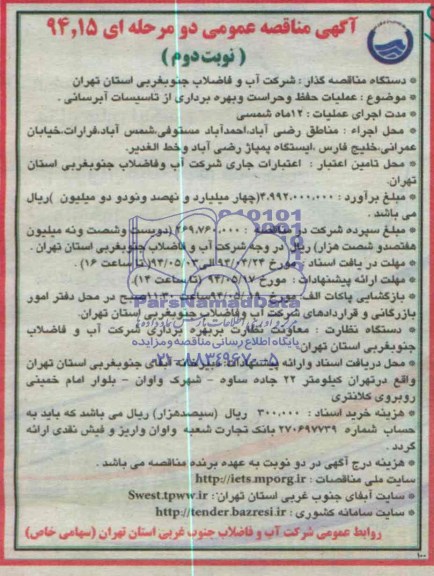 آگهی مناقصه عمومی دو مرحله ای ۹۴,۱۵
( نوبت دوم )
* دستگاه مناقصه گذار : شرکت آب و فاضلاب جنوبغربی استان تهران
* موضوع : عملیات حفظ وحراست وبهره برداری از تاسیسات آبرسانی .
* مدت اجرای عملیات : ۱۲ماه شمسی
* محل اجراء : مناطق رضی آباد،احمدآباد مستوفی،شمس آباد،فرارات،خیابان
عمرانی،خلیج فارس ،ایستگاه پمپاژ رضی آباد وخط الغدیر.
* محل تامین اعتبار : اعتبارات جاری شرکت آب وفاضلاب جنوبغربی استان
تهران.
* مبلغ برآورد : ۴.۹۹۲.۰۰۰.۰۰۰(چهار میلیارد و نهصد ونودو دو میلیون )ریال
می باشد .
* مبلغ سپرده شرکت در مناقصه : ۲۶۹.۷۶۰.۰۰۰ (دویست وشصت ونه میلیون
هفتصدو شصت هزار) ریال در وجه شرکت آب و فاضلاب جنوبغربی استان تهران .
* مهلت در یافت اسناد : مورخ ۹۴/۰۴/۲۴ الی ۹۴/۰۵/۰۳( تا ساعت ۱۶) .
* مهلت ارائه پیشنهادات : مورخ ۹۴/۰۵/۱۷( تا ساعت ۱۴).
* بازگشایی پاکات الف: مورخ ۹۴/۰۵/ ساعت ۱۱:۳۰ صبح در محل دفتر امور
بازرگانی و قراردادهای شرکت آب وفاضلاب جنوبغربی استان تهران.
* دستگاه نظارت : معاونت نظارت بربهره برداری شرکت آب و فاضلاب
جنوبغربی استان تهران
* محل دریافت اسناد وارائه پیشنهادات: دبیرخانه آبفای جنوبغربی استان تهران
واقع درتهران کیلومتر ۲۲ جاده ساوه - شهرک واوان - بلوار امام خمینی
روبروی کلانتری
* هزینه خرید اسناد : ۳۰۰.۰۰۰ ریال (سیصدهزار) ریال می باشد که باید به
حساب شماره ۲۷۰۶۹۷۷۳۹ بانک تجارت شعبه واوان واریز و فیش نقدی ارائه
گردد .
* هزینه درج آگهی در دو نوبت به عهده برنده مناقصه می باشد .
سایت ملی مناقصات : http://iets.mporg.ir
* سایت آبفای جنوب غربی استان تهران: Swest.tpww.ir
* سایت سامانه کشوری : http://tender.bazresi.ir
روابط عمومی شرکت آب و فاضلاب جنوب غربی استان تهران (سهامی خاص)
۱۰۰
ParsNamadData
پایگاه اطلاع رسانی مناقصه ومزایده
۰۲۱-۸۸۳۴۹۶۷۰-۵